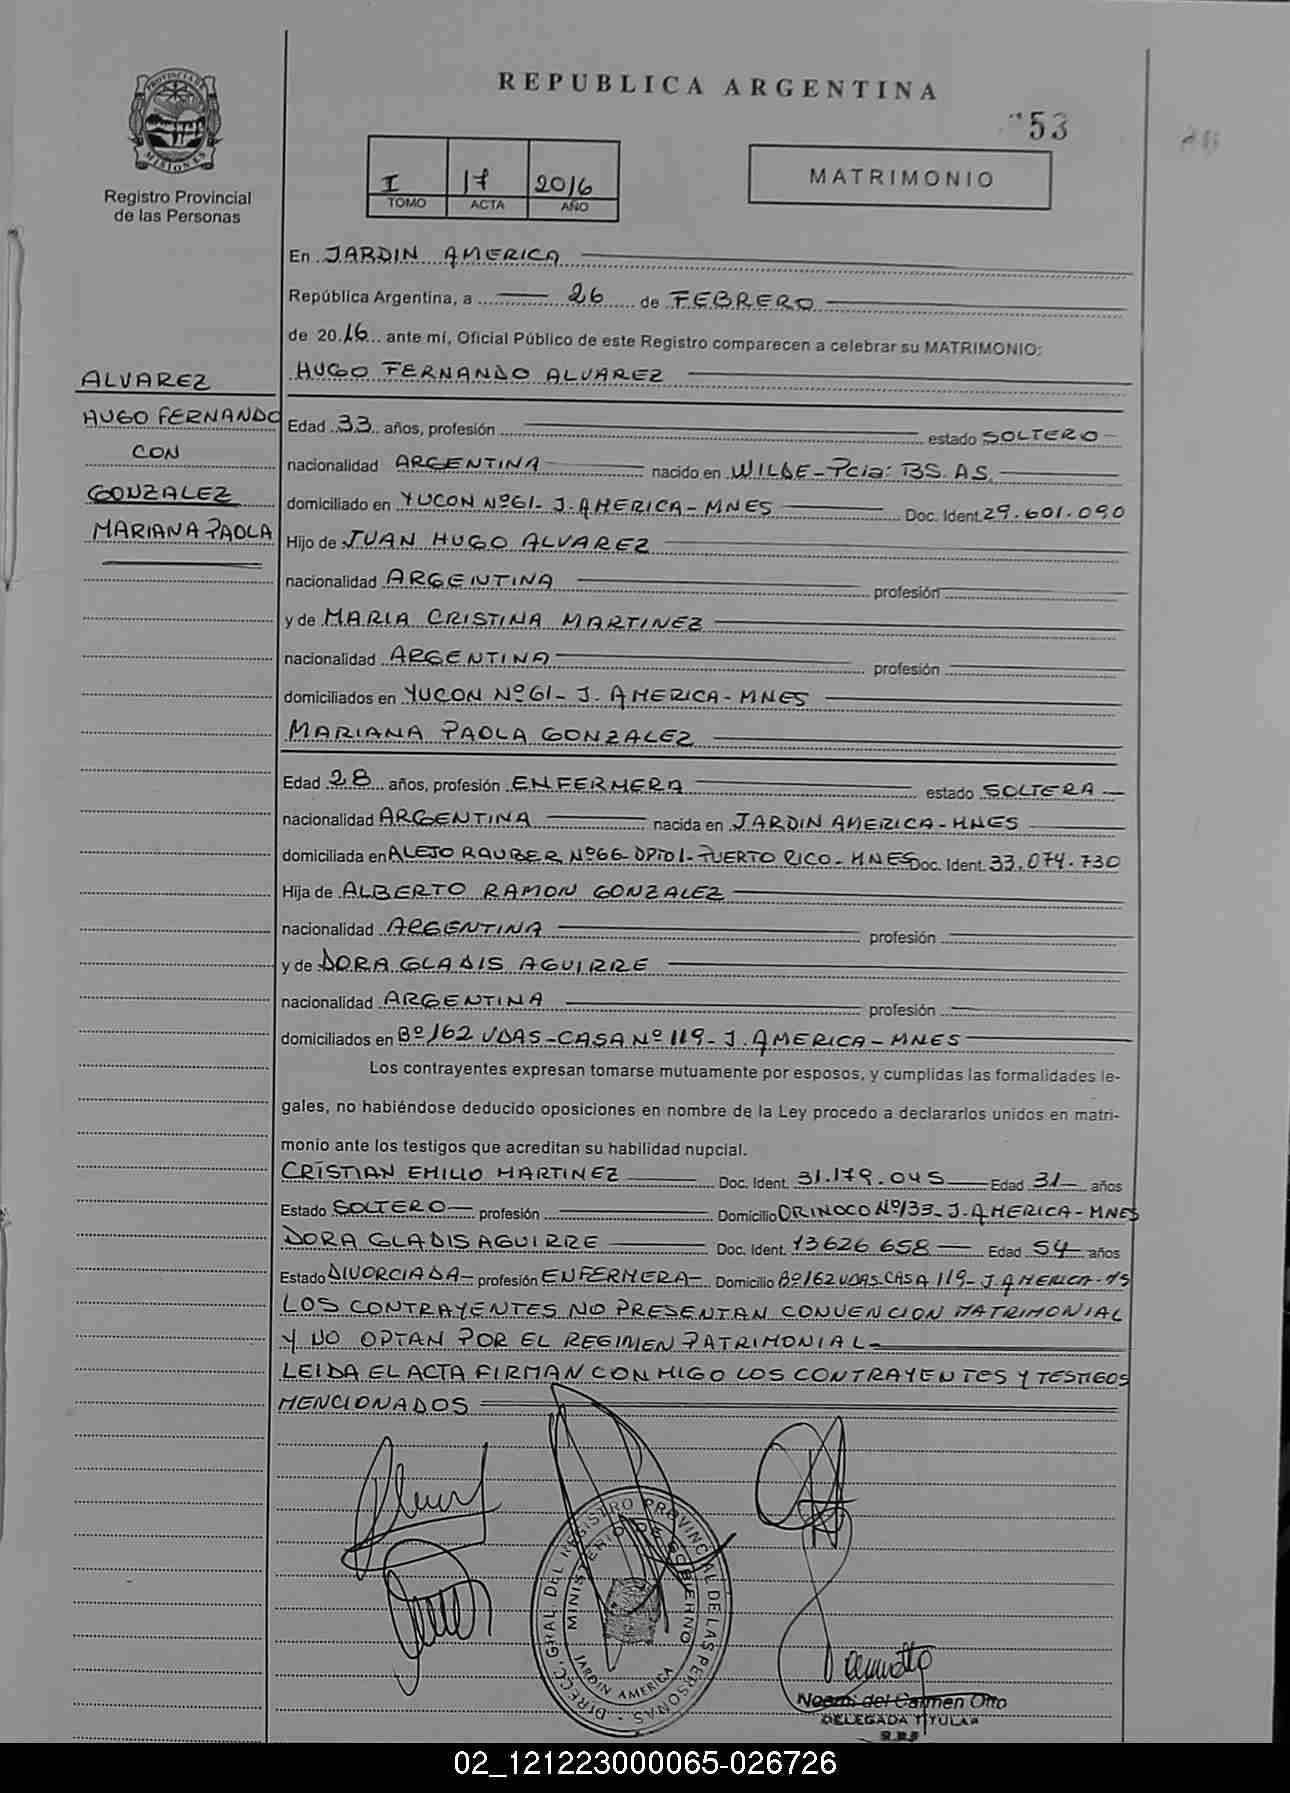 REPUBLICA ARGENTINA
53
PROVINCIA DE
MISIONES
Registro Provincial
de las Personas
I 17 2016
TOMO ACTA AÑO
MATRIMONIO
En JARDIN AMERICA
República Argentina, a 26 de FEBRERO
de 2016 ante mí, Oficial Público de este Registro comparecen a celebrar su MATRIMONIO:
HUGO FERNANDO ALVAREZ
ALVAREZ
HUGO FERNANDO
CON
GONZALEZ
MARIANA PAOLA
Edad 33 años, profesión estado SOLTERO
nacionalidad ARGENTINA nacido en WILDE-Pcia: BS.AS.
domiciliado en YUCON Nº61- J. AMERICA-MNES Doc. Ident. 29.601.090
Hijo de JUAN HUGO ALVAREZ
nacionalidad ARGENTINA profesión
y de MARIA CRISTINA MARTINEZ
nacionalidad ARGENTINA profesión
domiciliados en YUCON Nº61- J. AMERICA-MNES
MARIANA PAOLA GONZALEZ
Edad 28 años, profesión ENFERMERA estado SOLTERA
nacionalidad ARGENTINA nacida en JARDIN AMERICA-MNES
domiciliada en ALEJO RAUBER Nº66-DPTO1-PUERTO RICO-MNES Doc. Ident. 33.074.730
Hija de ALBERTO RAMON GONZALEZ
nacionalidad ARGENTINA profesión
y de DORA GLADIS AGUIRRE
nacionalidad ARGENTINA profesión
domiciliados en Bº162 VDAS-CASA Nº119-J. AMERICA-MNES
Los contrayentes expresan tomarse mutuamente por esposos, y cumplidas las formalidades le-
gales, no habiéndose deducido oposiciones en nombre de la Ley procedo a declararlos unidos en matri-
monio ante los testigos que acreditan su habilidad nupcial.
CRISTIAN EMILIO MARTINEZ Doc. Ident. 31.179.045 Edad 31 años
Estado SOLTERO profesión Domicilio ORINOCO Nº133-J. AMERICA-MNES
DORA GLADIS AGUIRRE Doc. Ident. 13626 658 Edad 54 años
Estado DIVORCIADA profesión ENFERMERA Domicilio Bº162 VDAS-CASA 119-J. AMERICA
LOS CONTRAYENTES NO PRESENTAN CONVENCION MATRIMONIAL
Y NO OPTAN POR EL REGIMEN PATRIMONIAL
LEIDA EL ACTA FIRMAN CON MIGO LOS CONTRAYENTES Y TESTIGOS
MENCIONADOS
DIRECC. GRAL. DEL REGISTRO PROVINCIAL DE LAS PERSONAS
MINISTERIO DE GOBIERNO
JARDIN AMERICA
Noemi del Carmen Otto
DELEGADA TITULAR
02_121223000065-026726